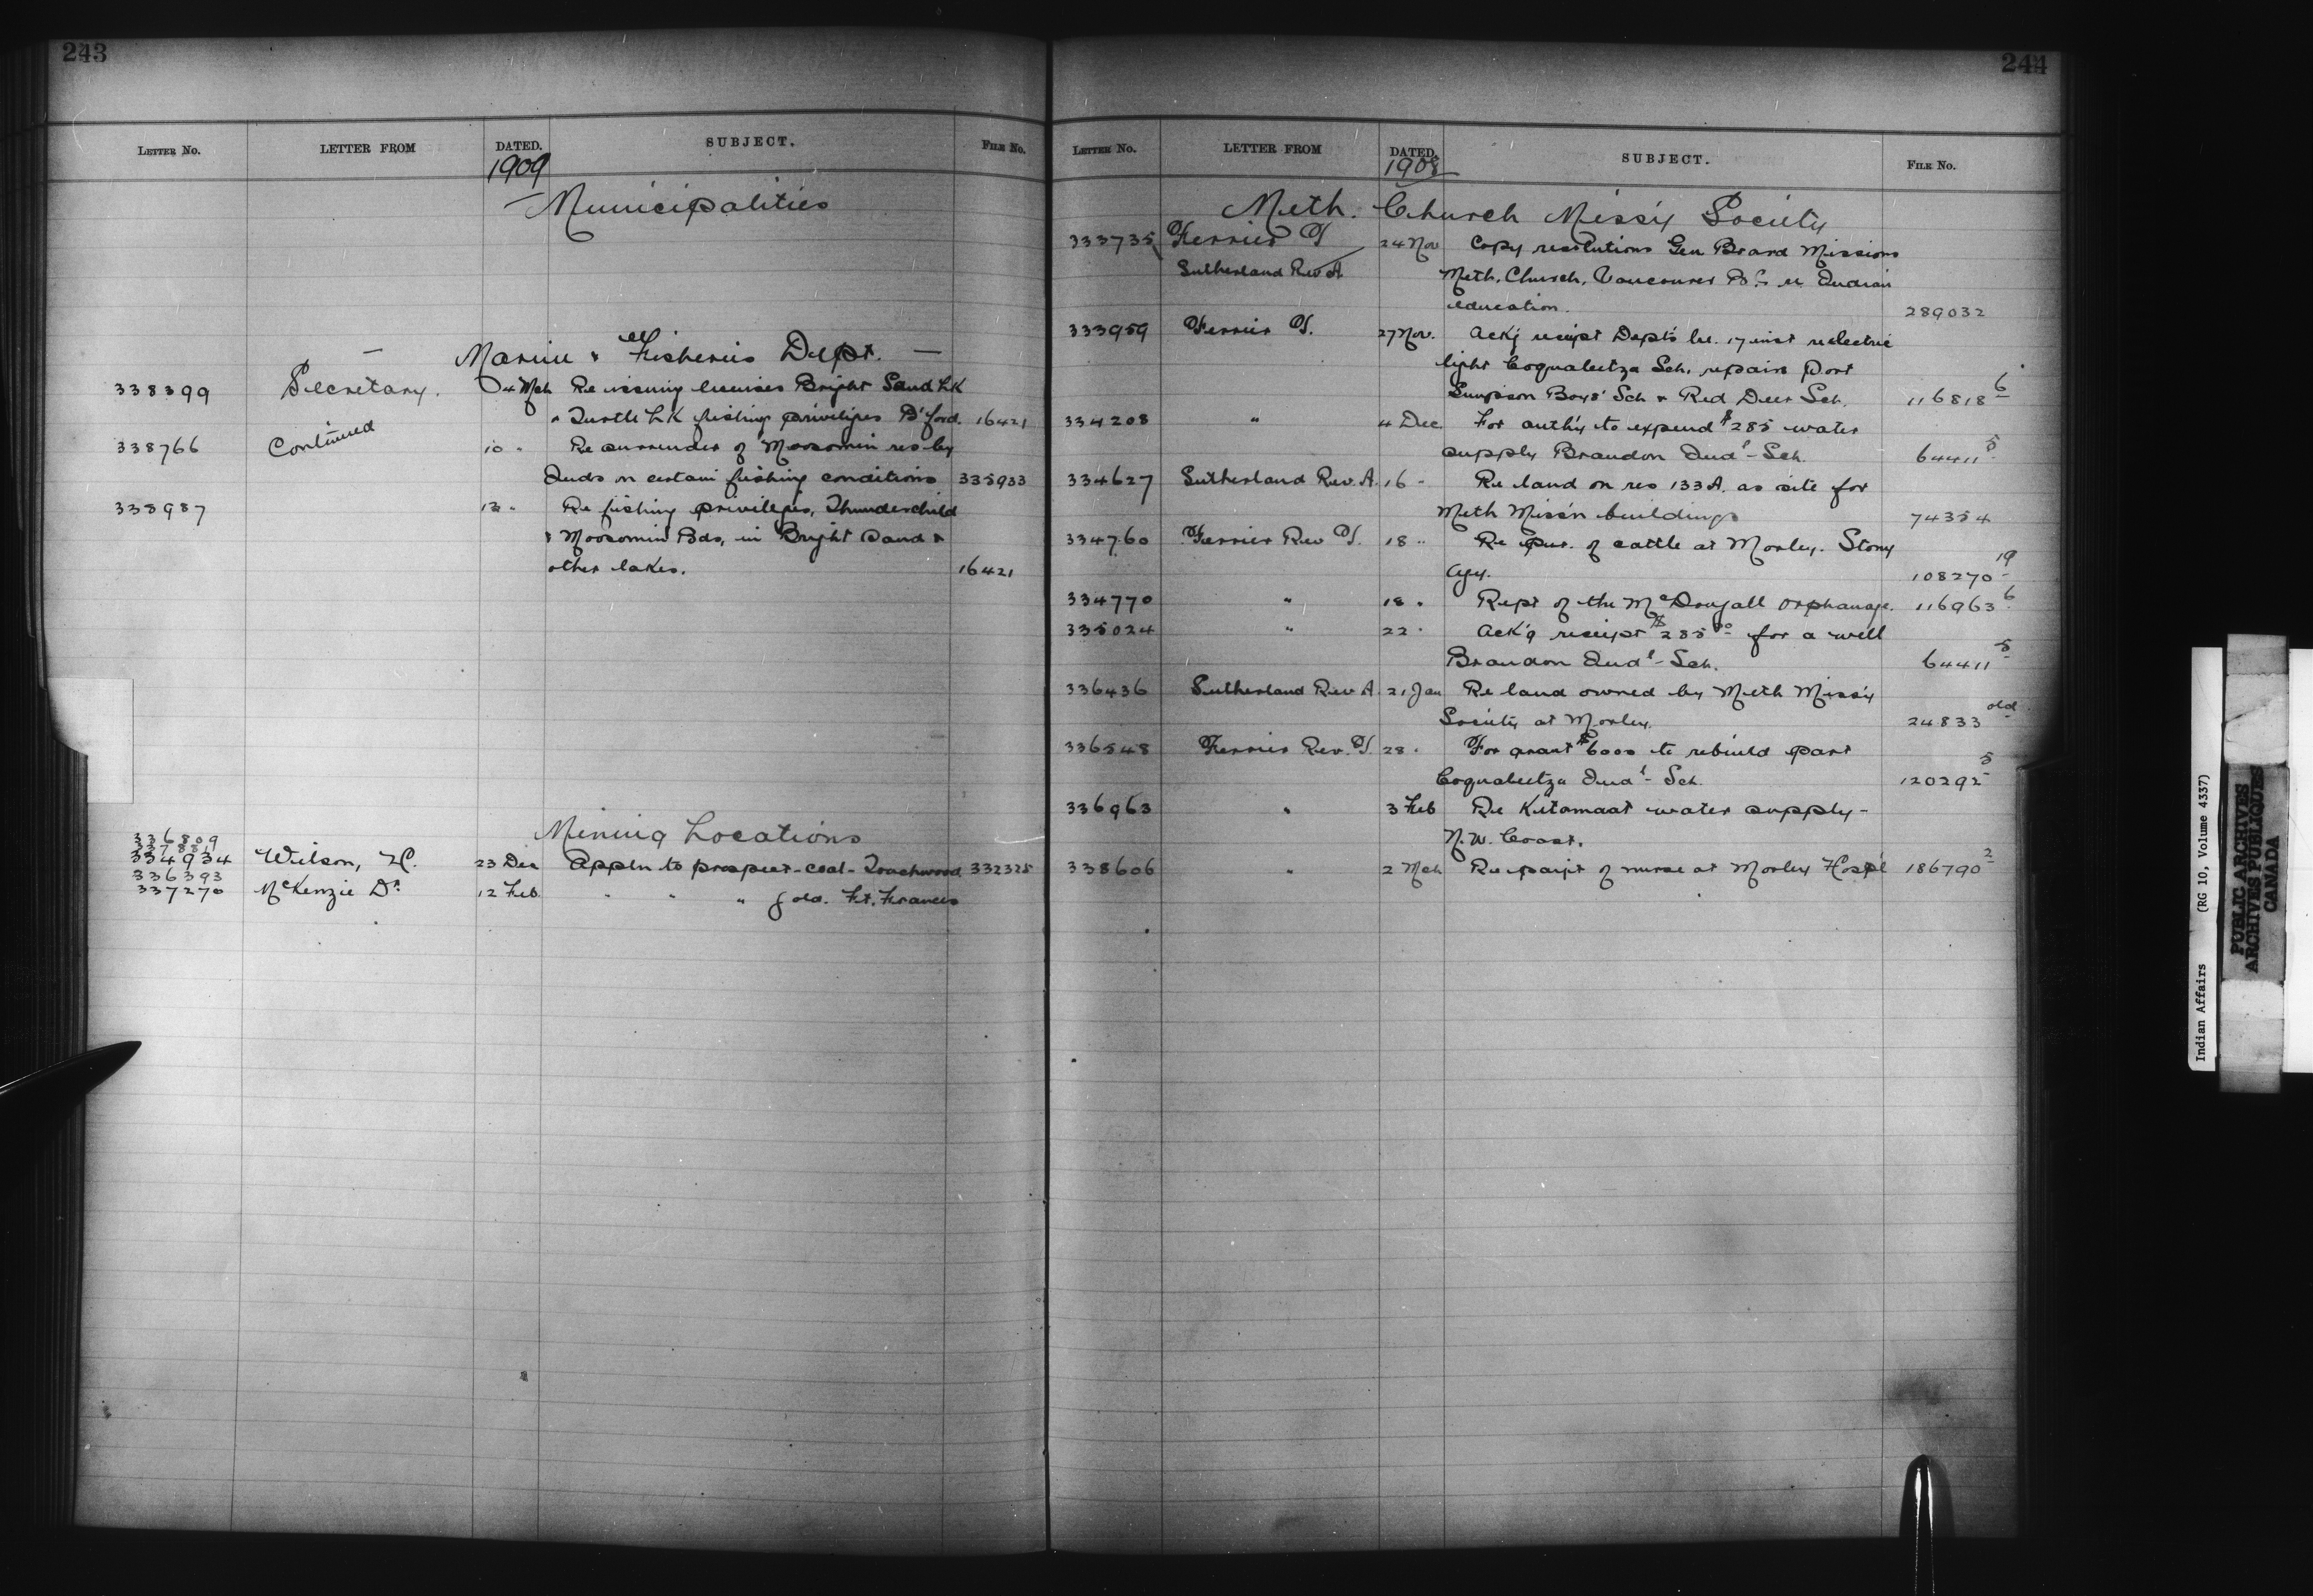 243
LETTER NO. LETTER FROM DATED. SUBJECT. FILE NO.
1909
Municipalities
Marine & Fisheries Dept.
338399 Secretary. 4 Mch Re issuing licenses Bright Sand Lk
& Turtle Lk fishing privileges B'ford. 16421
338766 Continued 10 " Re surrender of Moosomin res by
Inds on certain fishing conditions 335933
338987 13 " Re fishing privileges, Thunderchild
& Moosomin Bds, in Bright Sand &
other lakes. 16421
Mining Locations
336809
334934 Wilson, H. 23 Dec Appln to prospect - coal - Touchwood 332325
336393
337270 McKenzie D. 12 Feb " " " gold. Ft. Frances
244
LETTER NO. LETTER FROM DATED. SUBJECT. FILE NO.
1908
Meth. Church Miss'y Society
333735 Ferrier T 24 Nov Copy resolutions Gen Board Missions
Sutherland Rev A Meth. Church, Vancouver B.C. re Indian
education. 289032
333959 Ferrier T. 27 Nov. Ack'g receipt Dept's lre. 17 inst re electric
light Coqualeetza Sch. repairs Port
Simpson Boys' Sch & Red Deer Sch. 116818-6
334208 " 4 Dec For auth'y to expend $285 water
supply Brandon Ind'l Sch. 64411-5
334627 Sutherland Rev. A. 16 " Re land on res 133A. as site for
Meth Miss'n buildings 74354
334760 Ferrier Rev T. 18 " Re pur. of cattle at Morley. Stony
Agy. 108270-19
334770 " 18 " Rept of the McDougall Orphanage. 116963-6
335024 " 22 " Ack'g receipt $285.00 for a well
Brandon Ind'l Sch. 64411-5
336436 Sutherland Rev A. 21 Jan Re land owned by Meth Miss'y
Society at Morley. 24833 old
336548 Ferrier Rev. T. 28 " For grant $6000 to rebuild part
Coqualeetza Ind'l Sch. 120292-5
336963 " 3 Feb Re Kitamaat water supply -
N.W. Coast.
338606 " 2 Mch Re paym't of nurse at Morley Hosp'l 186790-2
Indian Affairs (RG 10, Volume 4337)
PUBLIC ARCHIVES
ARCHIVES PUBLIQUES
CANADA